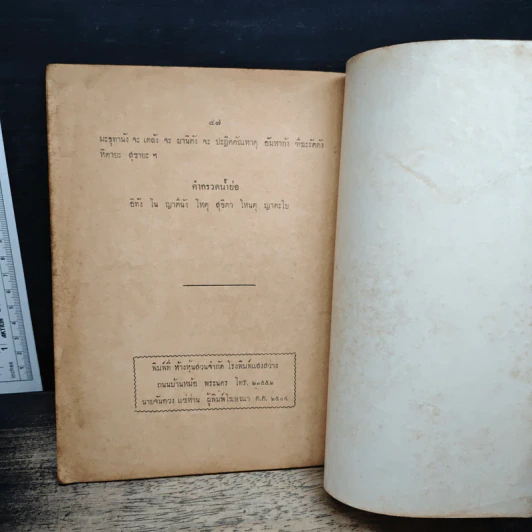 ๘๗
มะธุทานัง จะ เตลัง จะ ผาณิตัง จะ ปะฏิคคัณหาตุ อัมหากัง ทีฆะรัตตัง
หิตายะ สุขายะ ฯ
คำกรวดน้ำย่อ
อิทัง โน ญาตินัง โหตุ สุขิตา โหนตุ ญาตะโย
พิมพ์ที่ ห้างหุ้นส่วนจำกัด โรงพิมพ์แสงสว่าง
ถนนบ้านหม้อ พระนคร โทร.
นายจันควง แซ่ห่าน ผู้พิมพ์โฆษณา